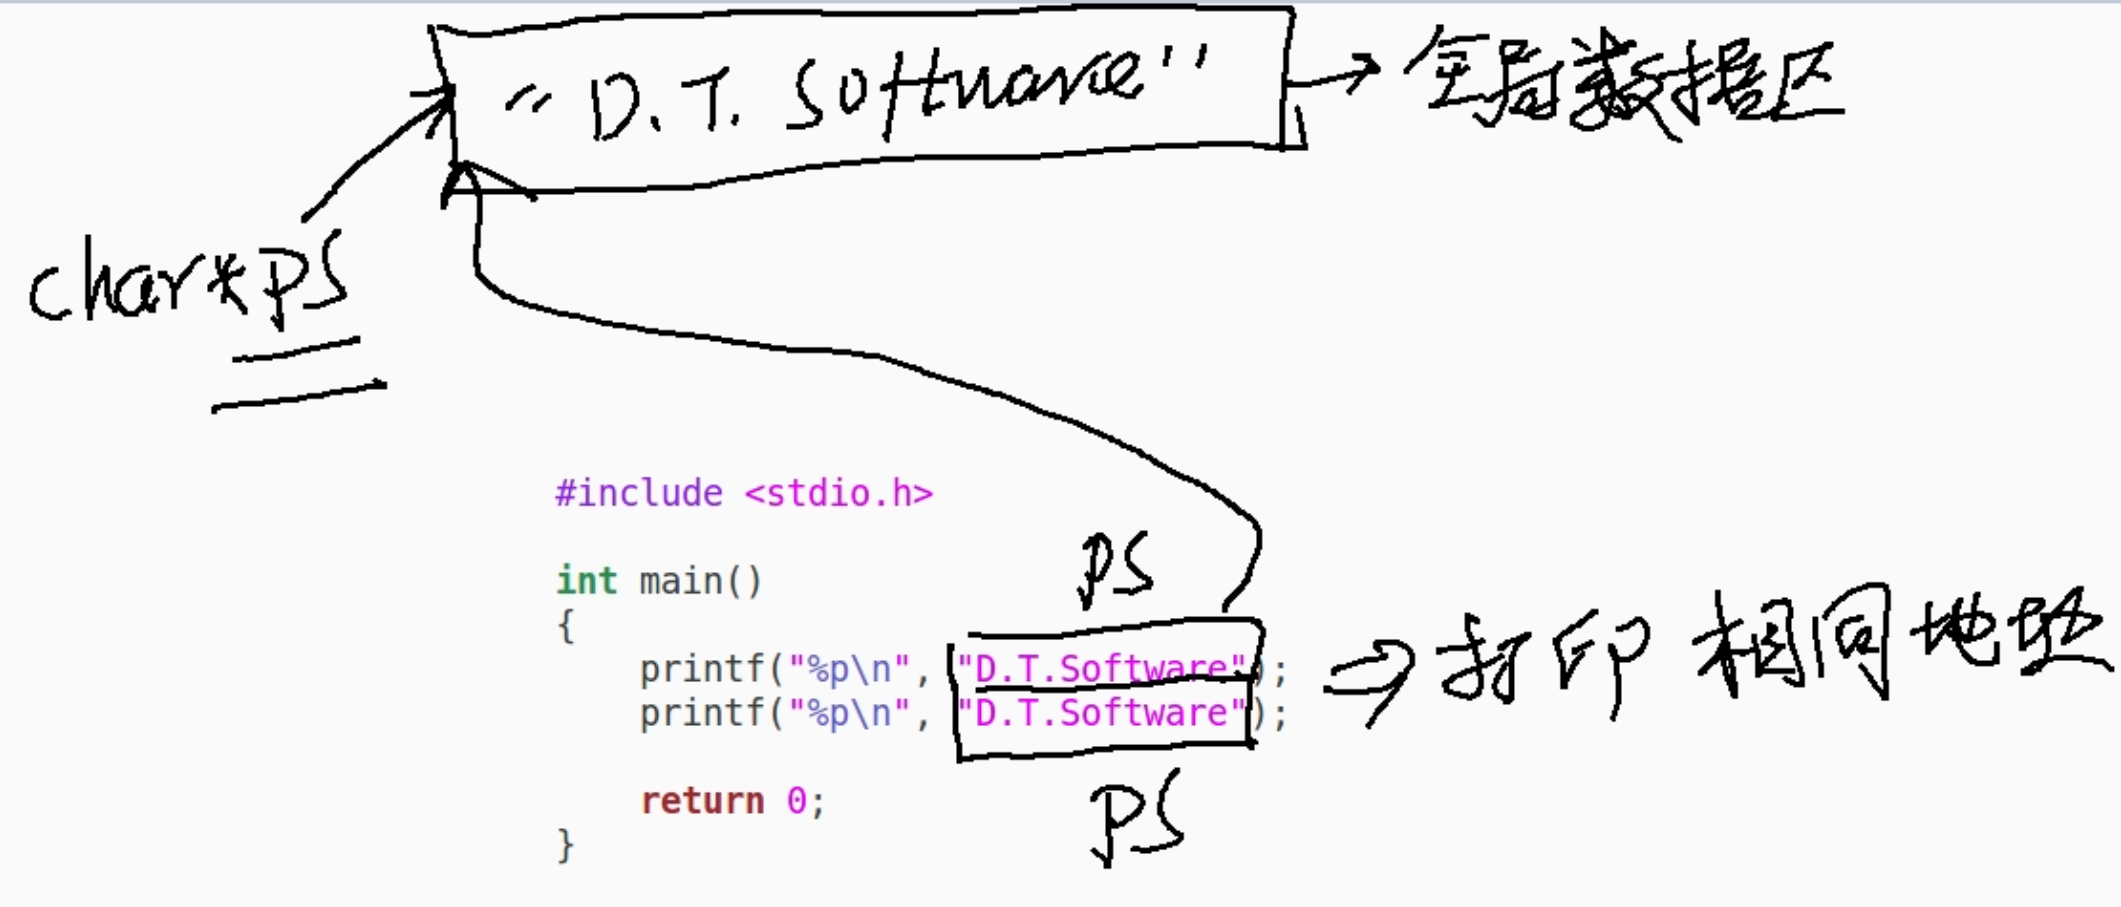 "D.T. Software" → 全局数据区
char*ps
#include <stdio.h>
int main()
ps
{
printf("%p\n", "D.T.Software");
printf("%p\n", "D.T.Software");
⇒打印 相同地址
return 0;
ps
}